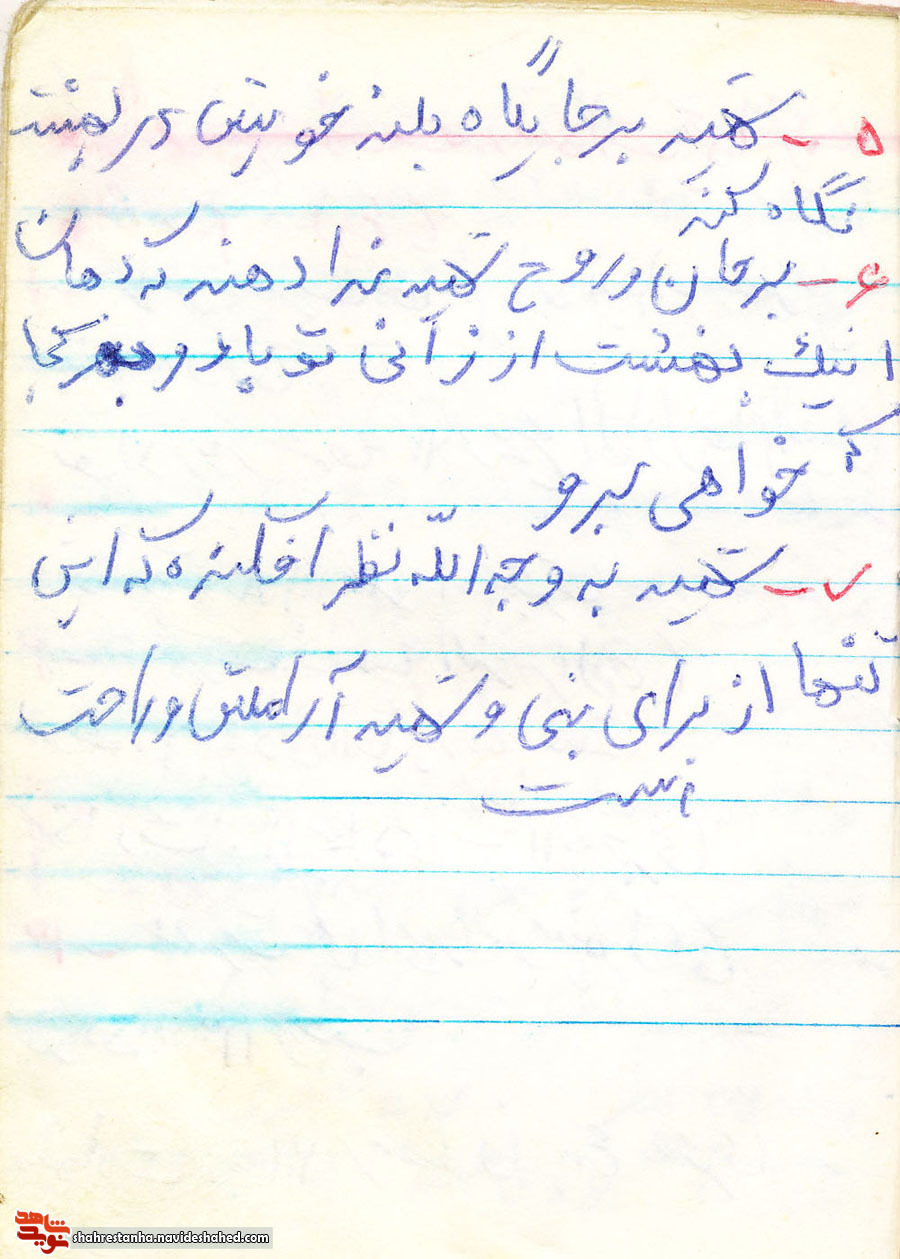 ۵ - شهید بر جایگاه بلند خویش در بهشت
نگاه کند
۶ - بر جان و روح شهید ندا دهند که همان
اینک بهشت ارزانی تو باد و بهر کجا
که خواهی برو
۷ - شهید به وجه الله نظر افکنده که این
تنها از برای نبی و شهید آرامش و راحت
است
نوید شاهد
shahrestanha.navideshahed.com